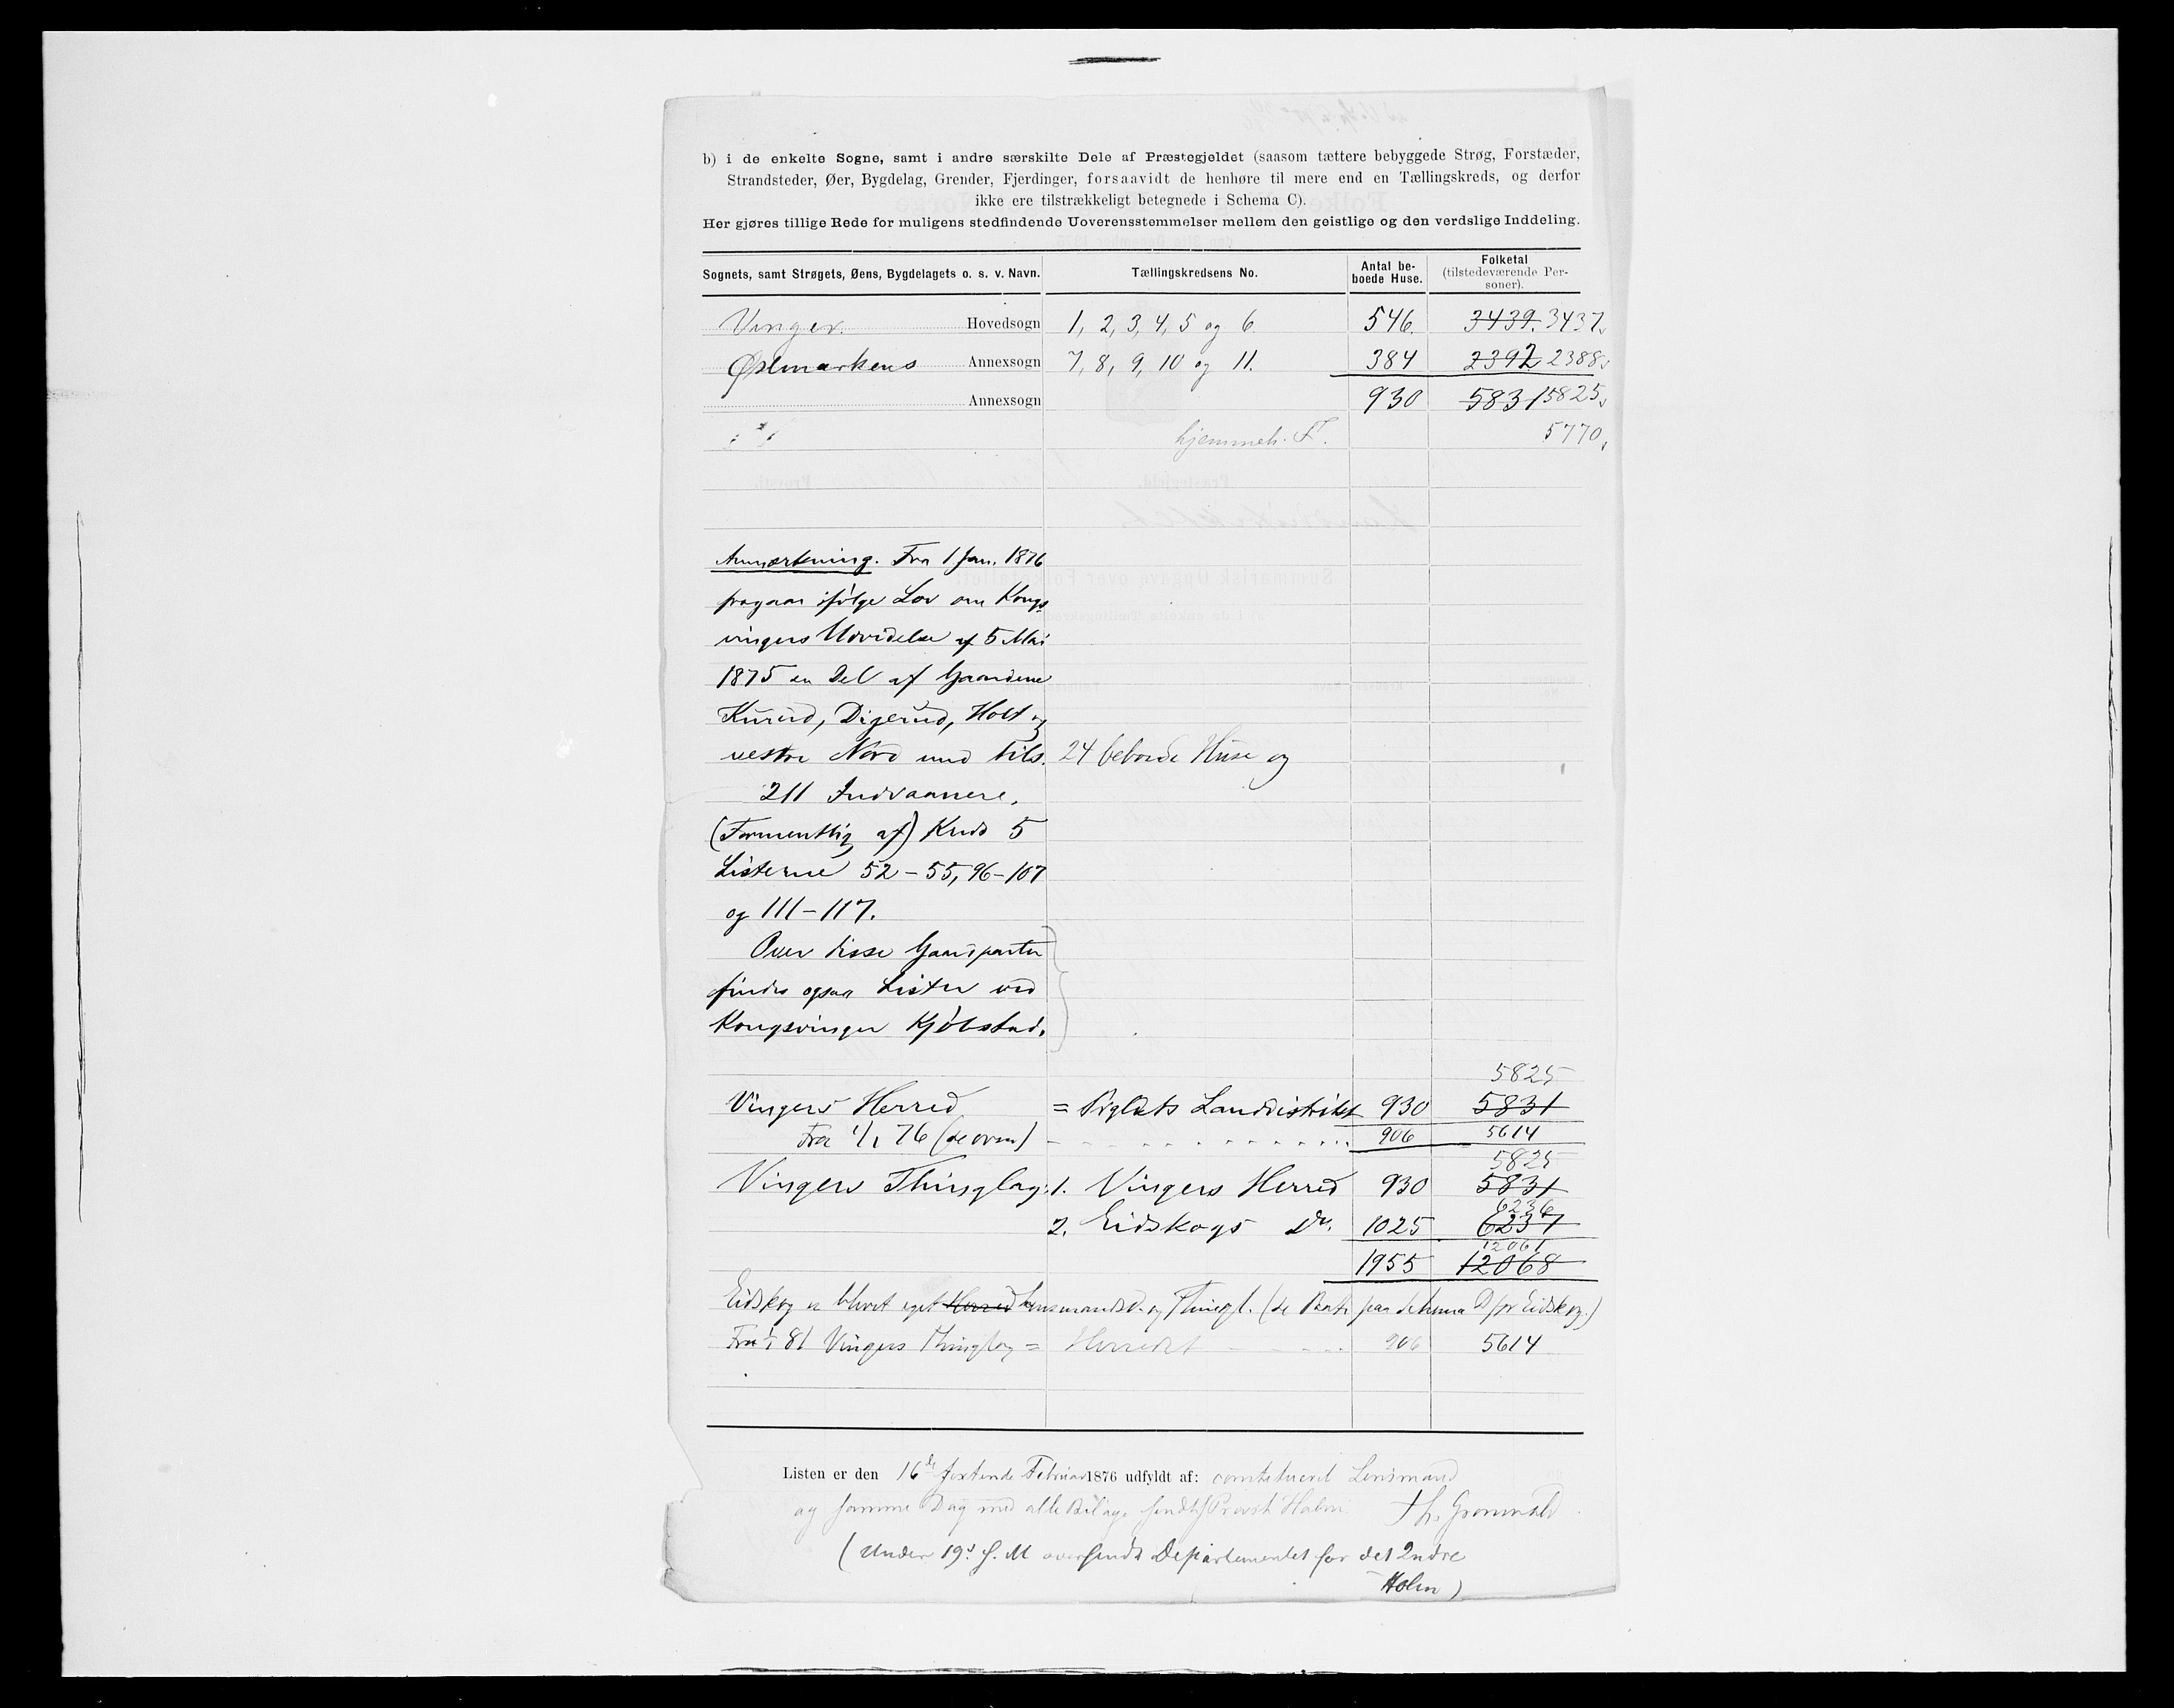 b) i de enkelte Sogne, samt i andre særskilte Dele af Præstegjeldet (saasom tættere bebyggede Strøg, Forstæder,
Strandsteder, Øer, Bygdelag, Grender, Fjerdinger, forsaavidt de henhøre til mere end en Tællingskreds, og derfor
ikke ere tilstrækkeligt betegnede i Schema C).
Her gjøres tillige Rede for muligens stedfindende Uoverensstemmelser mellem den geistlige og den verdslige Inddeling.
Sognets, samt Strøgets, Øens, Bygdelagets o. s. v. Navn. Tællingskredsens No. Antal beboede Huse. Folketal (tilstedeværende Personer).
Vinger Hovedsogn 1, 2, 3, 4, 5 og 6 546. 3439. 3437.
Østmarkens Annexsogn 7, 8, 9, 10 og 11. 384 2392 2388
Annexsogn 930 5831 5825
hjemmeh. F. 5770
Anmærkning. Fra 1 Jan. 1876
fragaar ifølge Lov om Kongs
vingers Udvidelse af 5 Mai
1875 en Del af Gaardene
Kurud, Digerud, Holt og
vestre Nord med tils. 24 beboede Huse og
211 Indvaanere.
(Formentlig af) Kreds 5
Listerne 52-55, 96-107
og 111-117.
Over disse Gaardparter
findes ogsaa Lister ved
Kongsvinger Kjøbstad.
5825
Vingers Herred = Prgldets Landdistrikt 930 5831
Fra 1/1 76 (se ovenf) 906 5614
5825
Vingers Thinglag: 1. Vingers Herred 930 5831
6236
2. Eidskogs Do. 1025 6237
12061
1955 12068
Eidskog er blevet eget Herred Lensmandsd. og Thingl. (se Bem. paa Schema D for Eidskog.)
Fra 1/1 81 Vingers Thinglag = Herredet 906 5614
Listen er den 16de sextende Februar 1876 udfyldt af: constitueret Lensmand
og samme Dag med alle Bilage sendt Provst Holm. Th. Grønvold
(Under 19de s. M oversendt Departementet for det Indre
Holm)